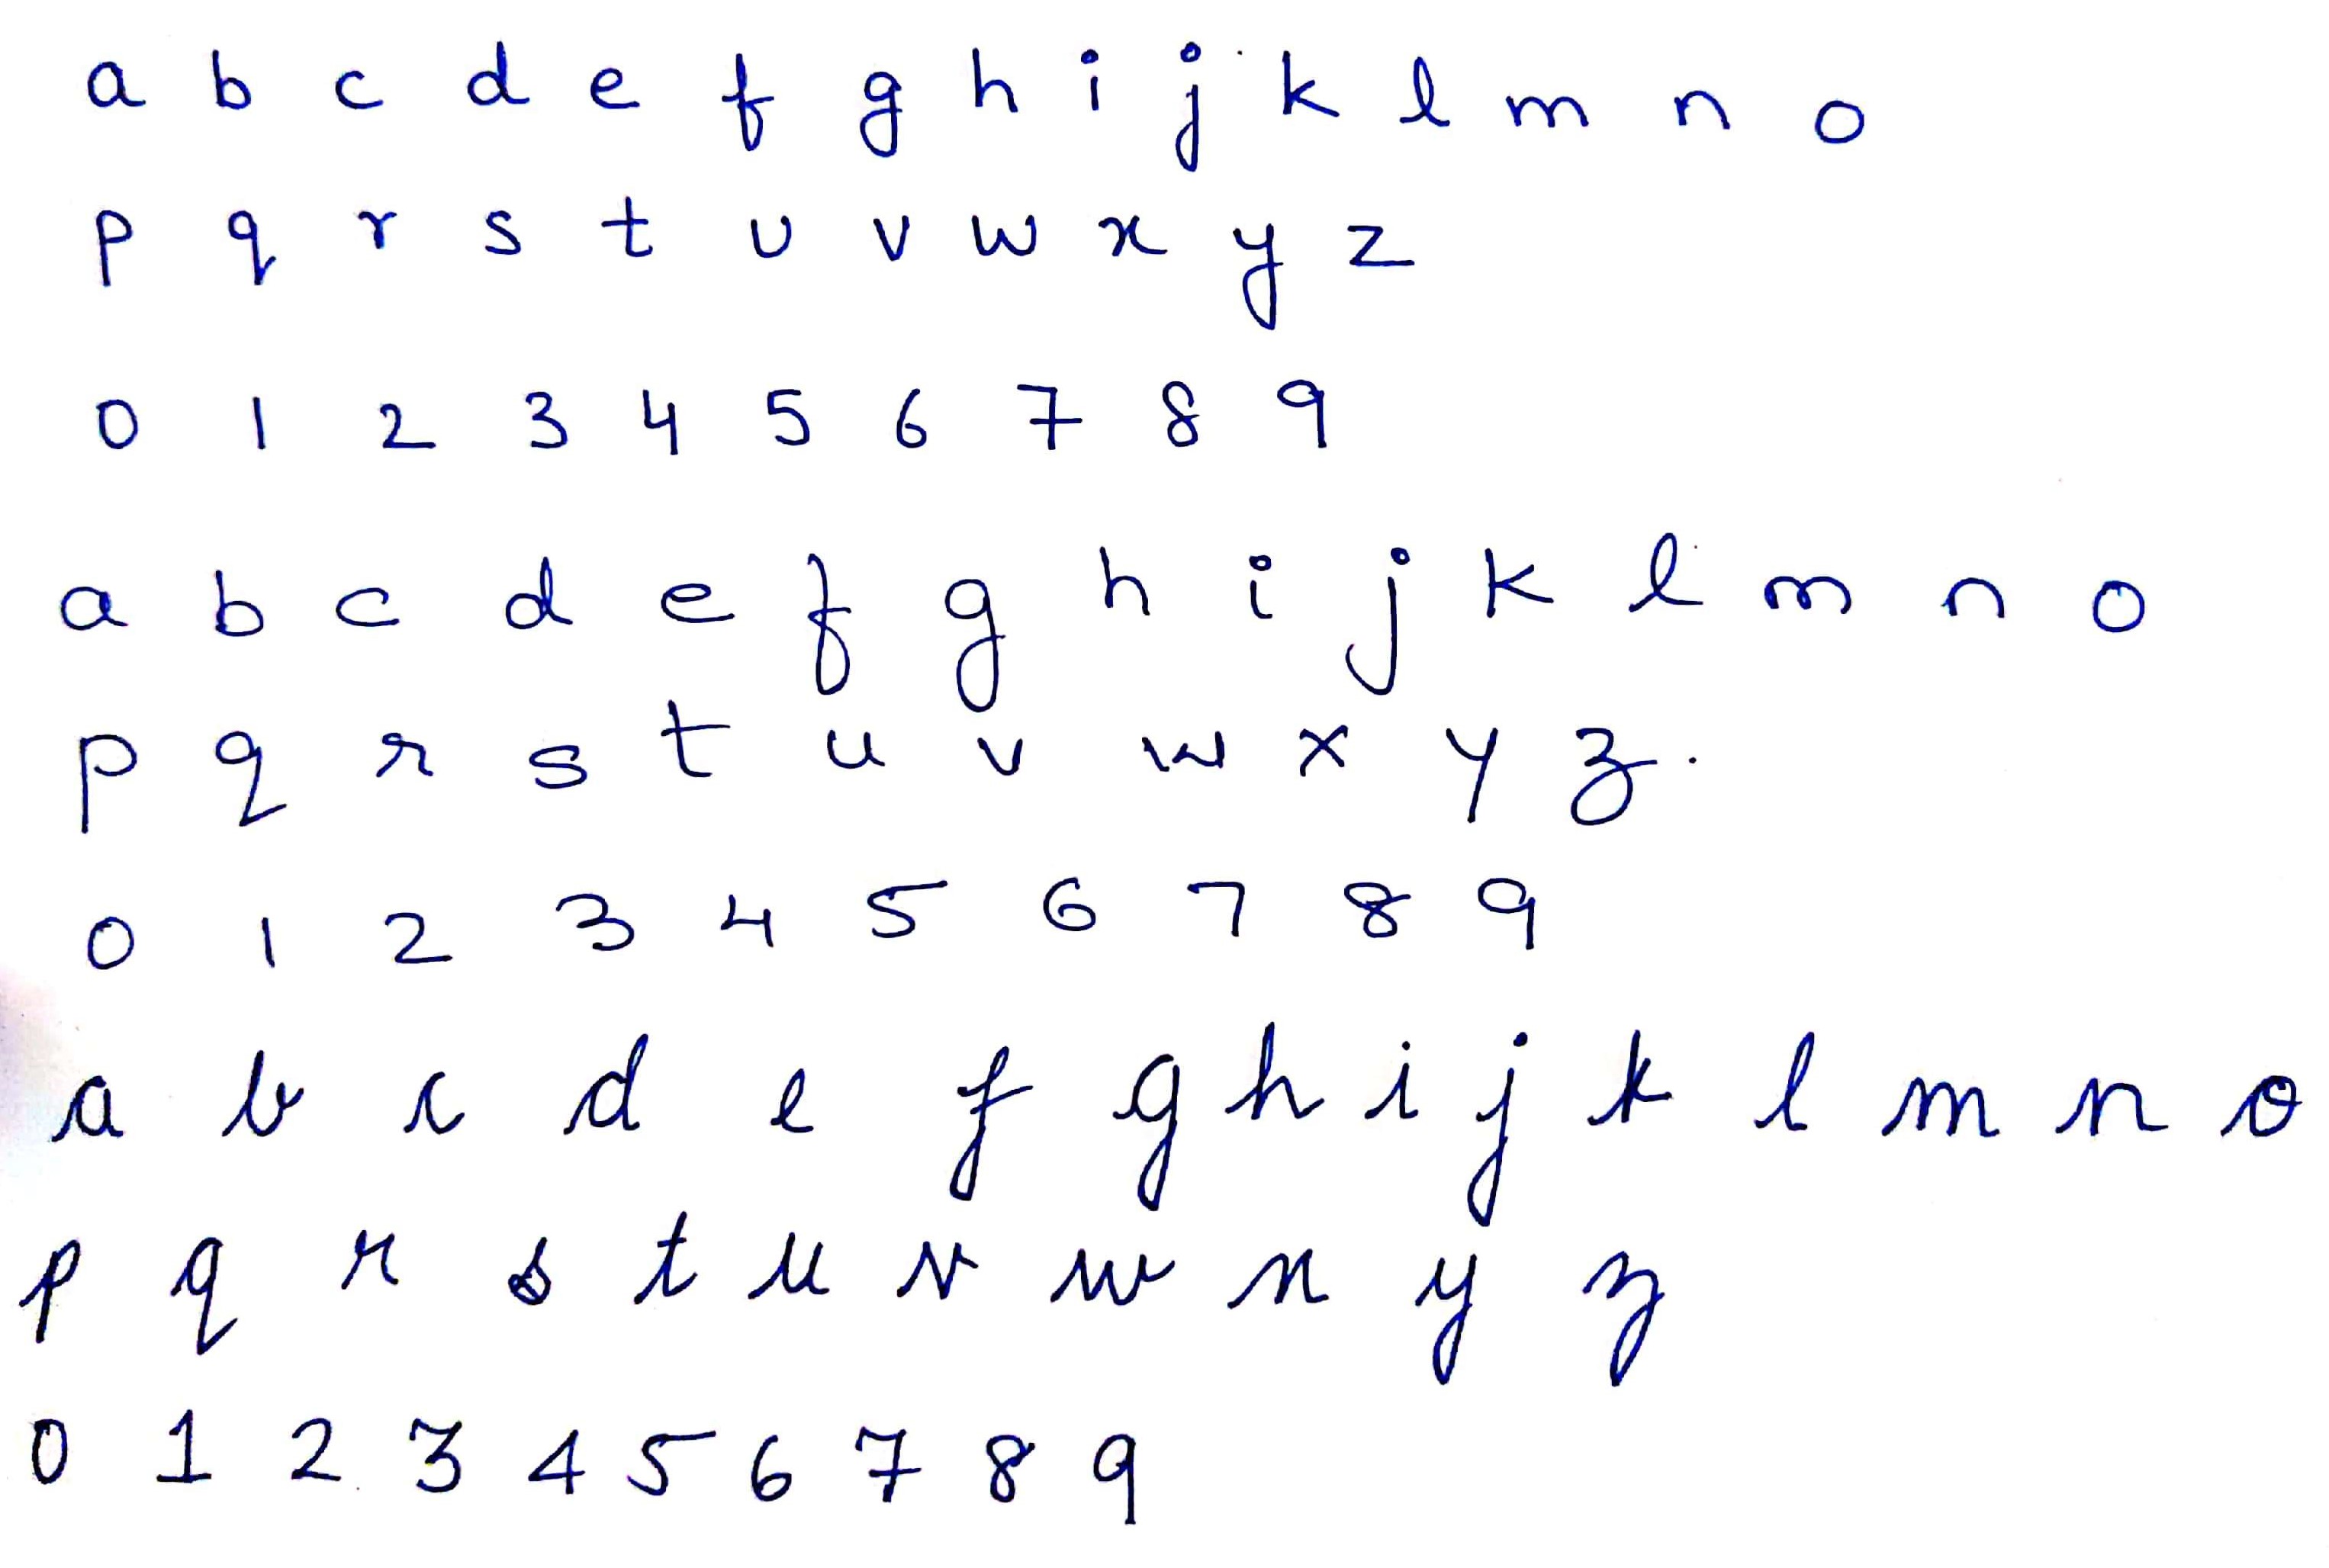 a b c d e f g h i j k l m n o
p q r s t u v w x y z
0 1 2 3 4 5 6 7 8 9
a b c d e f g h i j k l m n o
p q r s t u v w x y z.
0 1 2 3 4 5 6 7 8 9
a b c d e f g h i j k l m n o
p q r s t u v w x y z
0 1 2 3 4 5 6 7 8 9